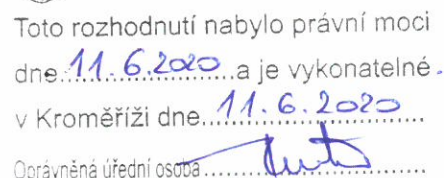 Toto rozhodnutí nabylo právní moci
dne 11.6.2020 a je vykonatelné.
v Kroměříži dne 11.6.2020
Oprávněná úřední osoba